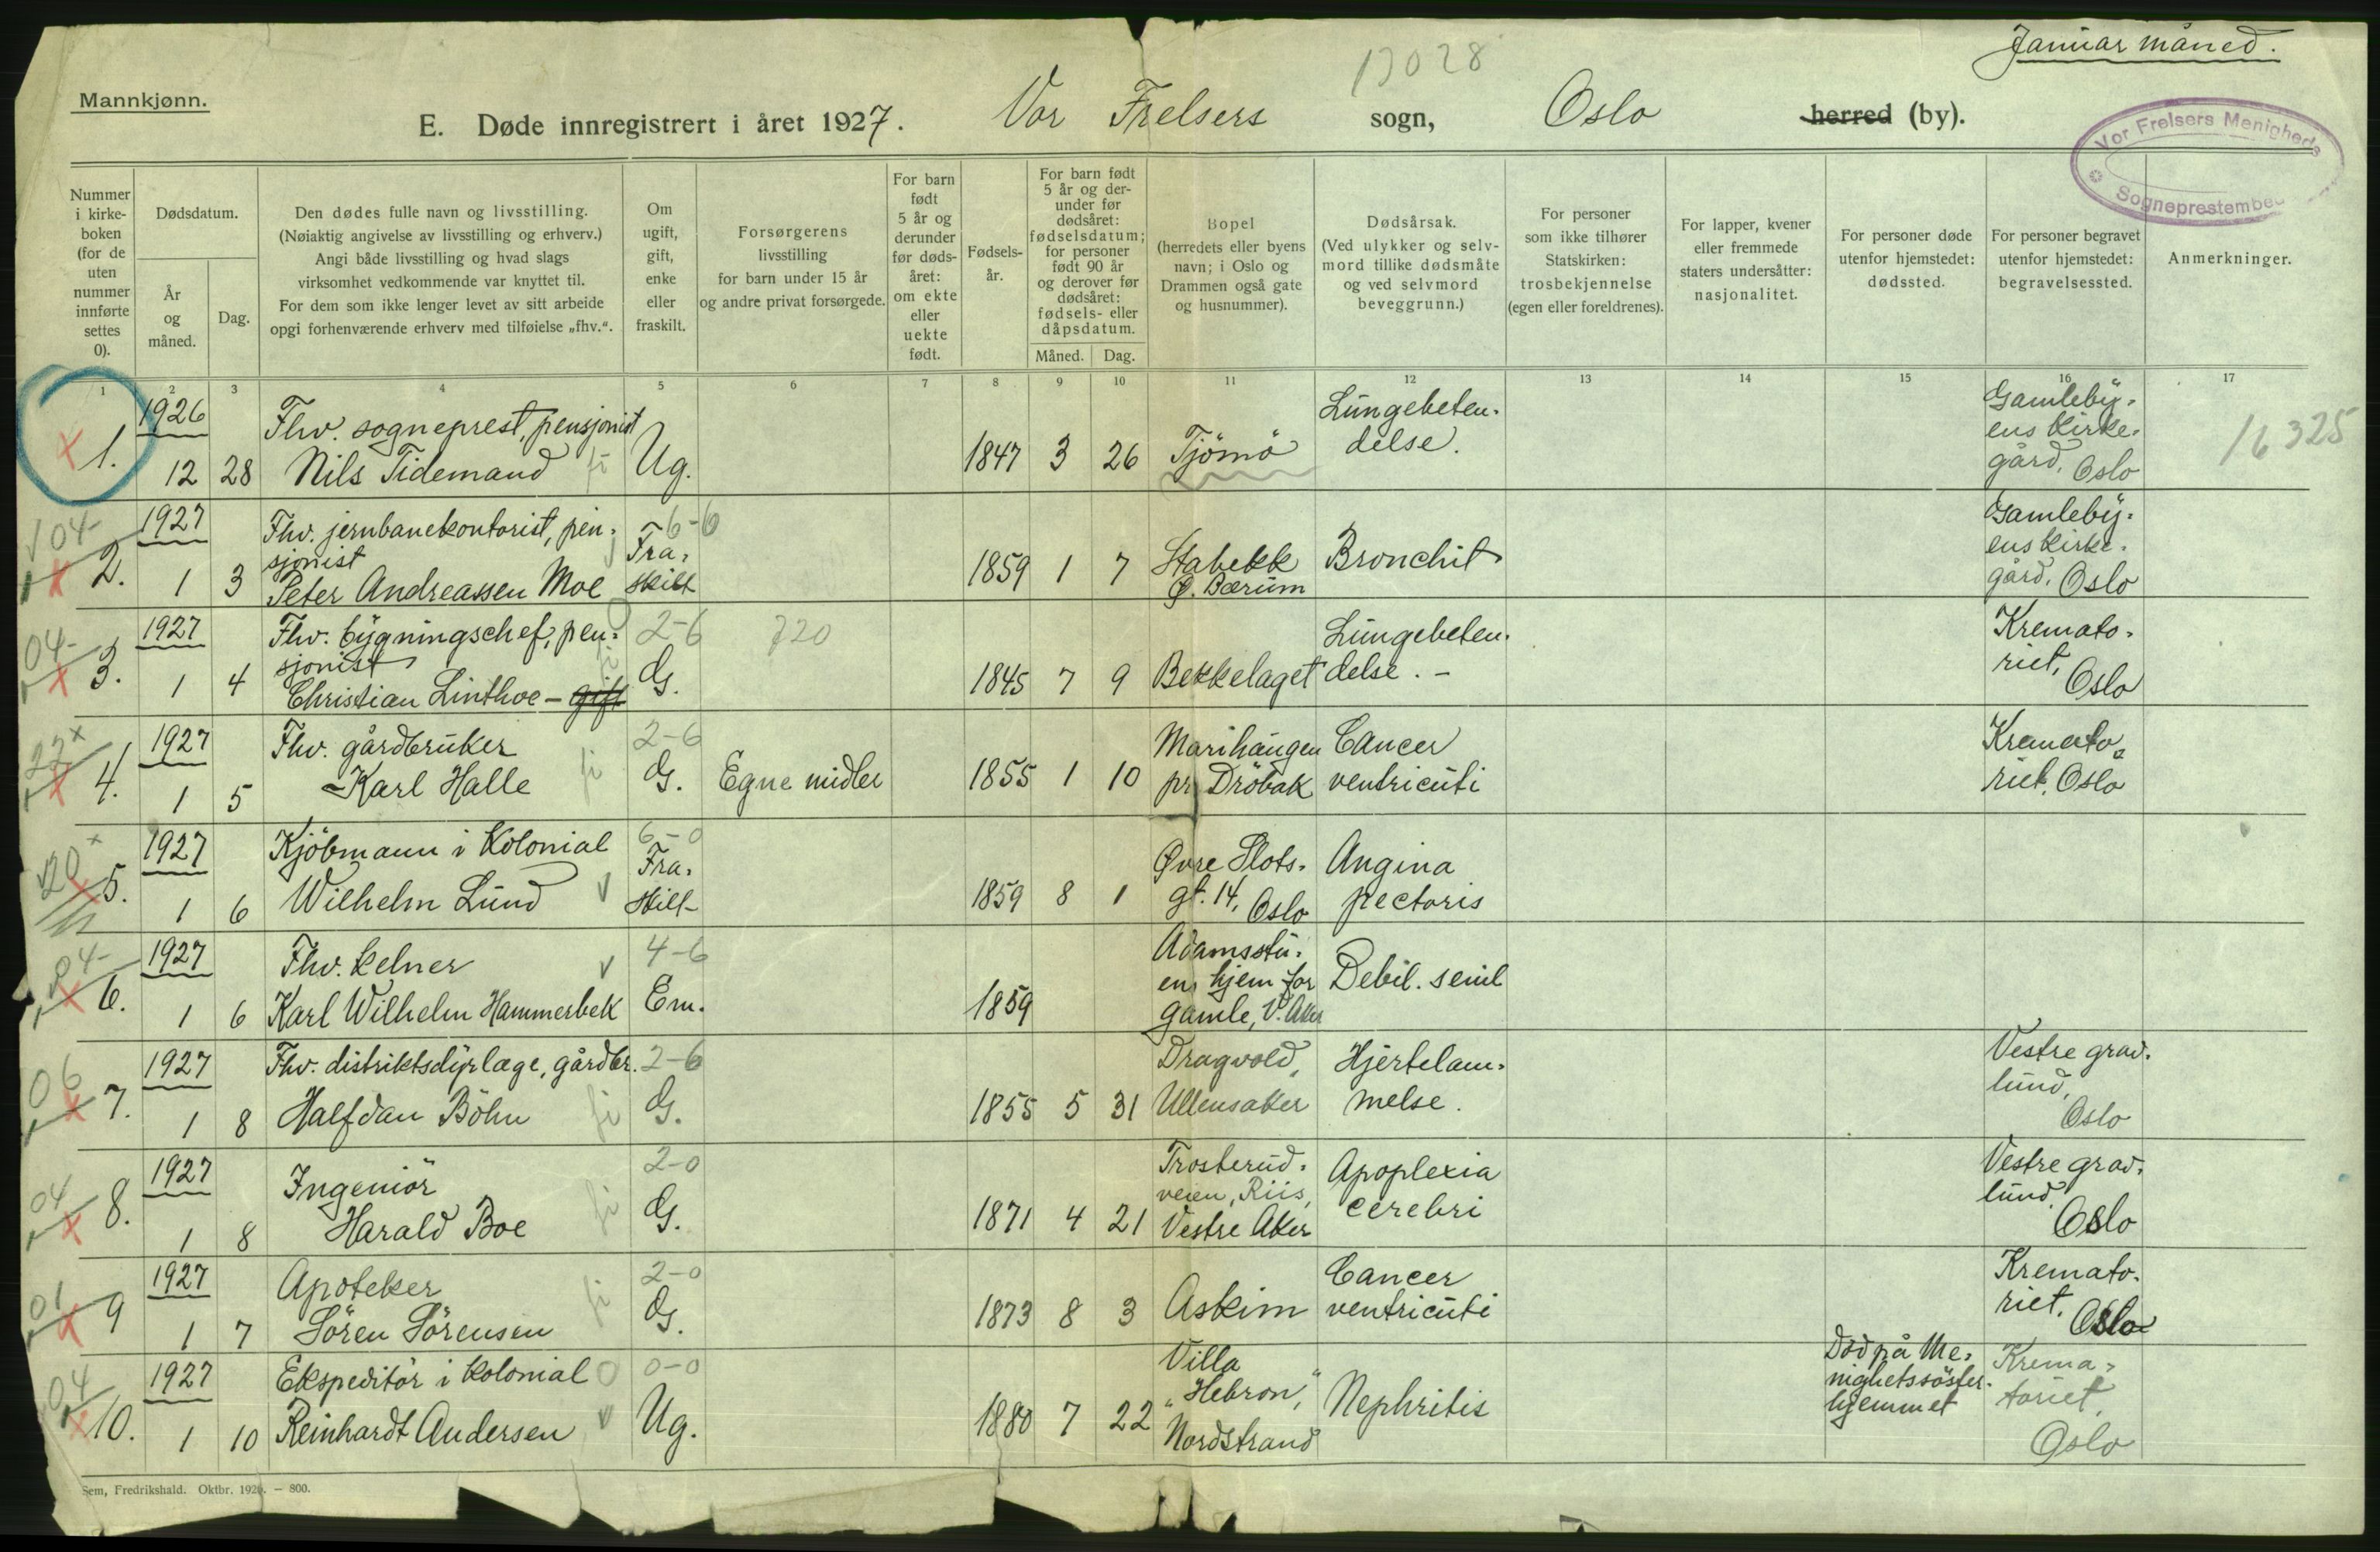 Januar måned.
13028
Mannkjønn.
E. Døde innregistrert i året 1927. Vor Frelsers sogn, Oslo herred (by).
Vor Frelsers Menigheds
Sogneprestembe
Nummer
i kirke-
boken
(for de
uten
nummer
innførte
settes
0).
Dødsdatum.
År
og
måned.
Dag.
Den dødes fulle navn og livsstilling.
(Nøiaktig angivelse av livsstilling og erhverv.)
Angi både livsstilling og hvad slags
virksomhet vedkommende var knyttet til.
For dem som ikke lenger levet av sitt arbeide
opgi forhenværende erhverv med tilføielse „fhv.“.
Om
ugift,
gift,
enke
eller
fraskilt.
Forsørgerens
livsstilling
for barn under 15 år
og andre privat forsørgede.
For barn
født
5 år og
derunder
før døds-
året:
om ekte
eller
uekte
født.
Fødsels-
år.
For barn født
5 år og der-
under før
dødsåret:
fødselsdatum;
for personer
født 90 år
og derover før
dødsåret:
fødsels- eller
dåpsdatum.
Måned. Dag.
Bopel
(herredets eller byens
navn; i Oslo og
Drammen også gate
og husnummer).
Dødsårsak.
(Ved ulykker og selv-
mord tillike dødsmåte
og ved selvmord
beveggrunn.)
For personer
som ikke tilhører
Statskirken:
trosbekjennelse
(egen eller foreldrenes).
For lapper, kvener
eller fremmede
staters undersåtter:
nasjonalitet.
For personer døde
utenfor hjemstedet:
dødssted.
For personer begravet
utenfor hjemstedet:
begravelsessted.
Anmerkninger.
1 2 3 4 5 6 7 8 9 10 11 12 13 14 15 16 17
1.
1926
12 28
Fhv. sogneprest, pensjonist
Nils Tidemand fi
Ug.
1847 3 26
Tjömö
Lungebeten-
delse.
Gamleby-
ens kirke-
gård, Oslo
16325
04-
2.
1927
1 3
Fhv. jernbanekontorist, pen-
sjonist
Peter Andreassen Moe
6-6
Fra-
skilt
1859 1 7
Stabekk
Ø. Bærum
Bronchit
Gamleby-
ens kirke-
gård, Oslo
04-
3.
1927
1 4
Fhv. bygningschef, pen-
sjonist
Christian Linthoe - gift
2-6
G.
720
1845 7 9
Bekkelaget
Lungebeten-
delse. -
Kremato-
riet,
Oslo
22 x
4.
1927
1 5
Fhv. gårdbruker
Karl Halle fi
2-6
G.
Egne midler
1855 1 10
Marihaugen
pr Dröbak
Cancer
ventriculi
Kremato-
riet, Oslo
20 x
5.
1927
1 6
Kjöbmann i Kolonial
Wilhelm Lund v
6-0
Fra-
skilt
1859 8 1
Øvre Slots-
gt. 14, Oslo
Angina
pectoris
04-
6.
1927
1 6
Fhv. kelner v
Karl Wilhelm Hammerbek
4-6
Em.
1859
Adamsstu-
en, hjem for
gamle, V. Aker
Debil. senil
06
7.
1927
1 8
Fhv. distriktsdyrlæge, gårdbr.
Halfdan Böhn fi
2-6
G.
1855 5 31
Dragvold,
Ullensaker
Hjertelam-
melse.
Vestre grav-
lund,
Oslo
04
8.
1927
1 8
Ingeniör
Harald Boe fi
2-0
G.
1871 4 21
Trosterud-
veien, Riis,
Vestre Aker
Apoplexia
cerebri
Vestre grav-
lund
Oslo
01
9
1927
1 7
Apoteker fi
Sören Sörensen
2-0
G.
1873 8 3
Askim
Cancer
ventriculi
Kremato-
riet,
Oslo
04
10.
1927
1 10
Ekspeditör i kolonial 0
Reinhardt Andersen v
0-0
Ug.
1880 7 22
Villa
„Hebron“,
Nordstrand
Nephritis
Död på Me-
nighetssöster-
hjemmet
Krema-
toriet,
Oslo
Sem, Fredrikshald. Oktbr. 1926. — 800.